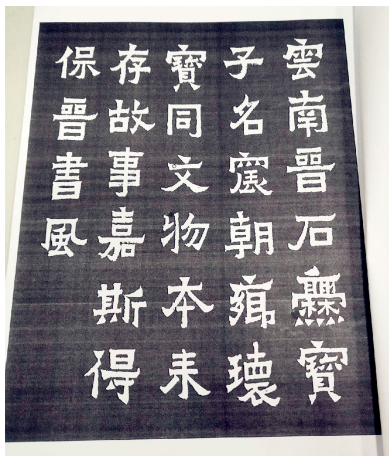 雲南晉石爨寶
子名寰朝雍瓌
寶同文物本来
存故事嘉斯得
保晉書風